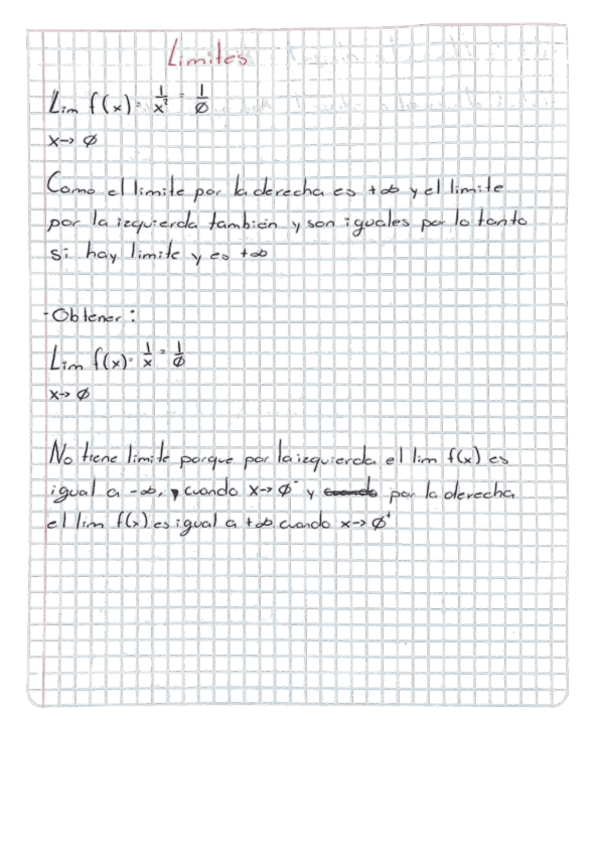 Limites
Lim f(x) = 1/x² = 1/Ø
x→ Ø
Como el limite por la derecha es +∞ y el limite
por la izquierda también y son iguales por lo tanto
si hay limite y es +∞
- Obtener:
Lim f(x) = 1/x = 1/Ø
x→ Ø
No tiene limite porque por la izquierda el lim f(x) es
igual a -∞, cuando x→ Ø⁻ y cuando por la derecha
el lim f(x) es igual a +∞ cuando x→ Ø⁺